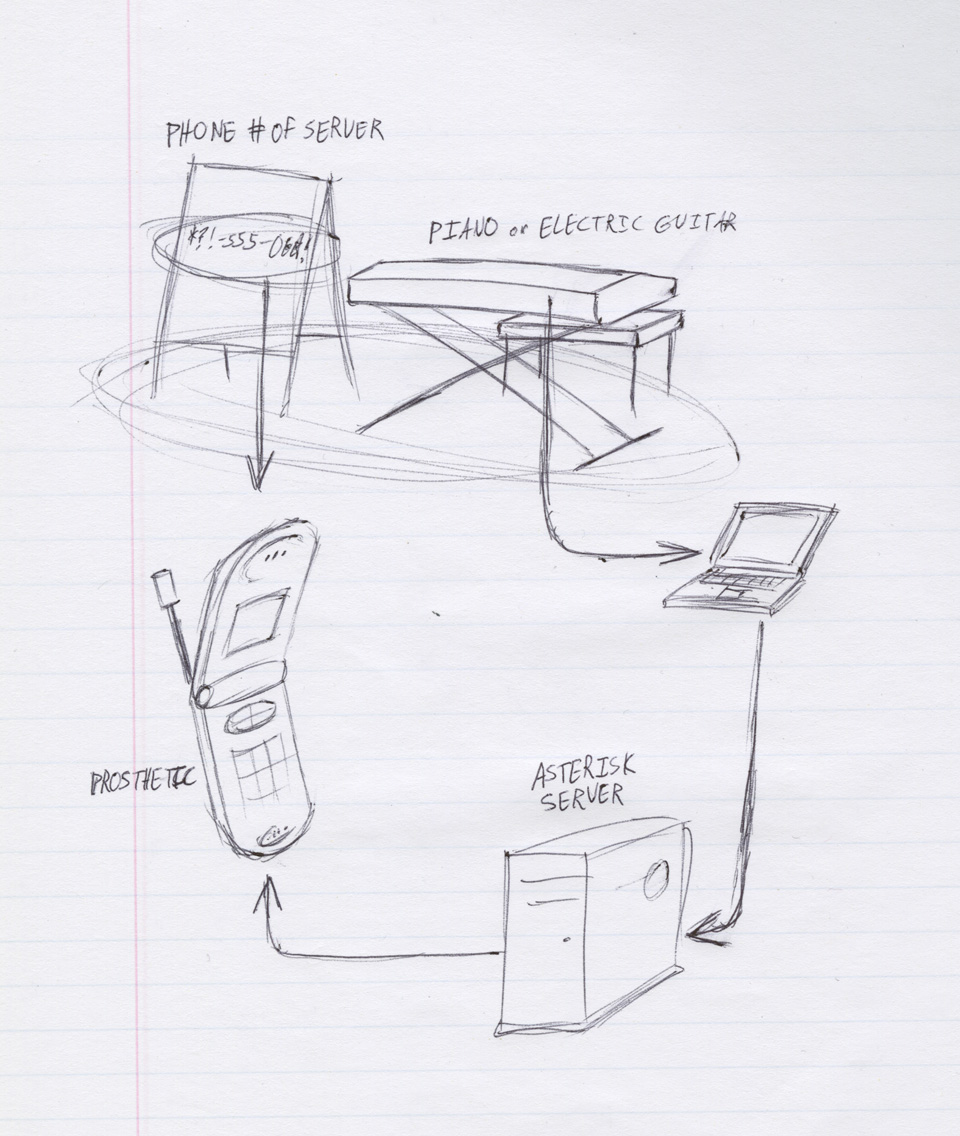 PHONE # OF SERVER
PIANO or ELECTRIC GUITAR
PROSTHETIC
ASTERISK
SERVER